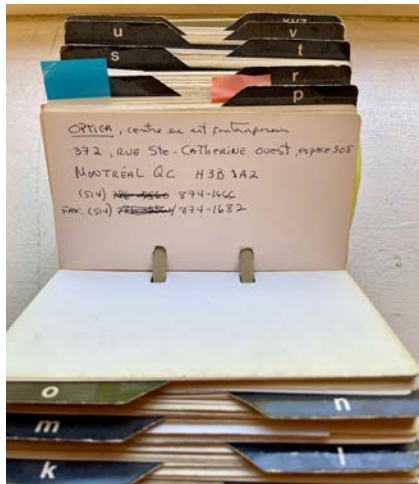 xyz
u
v
s
t
r
p
OPTICA, centre en art contemporain
372, RUE Ste-CATHERINE OUEST, ESPACE 508
MONTRÉAL QC H3B 1A2
(514) 874-1666
FAX: (514) 874-1682
o
n
m
l
k